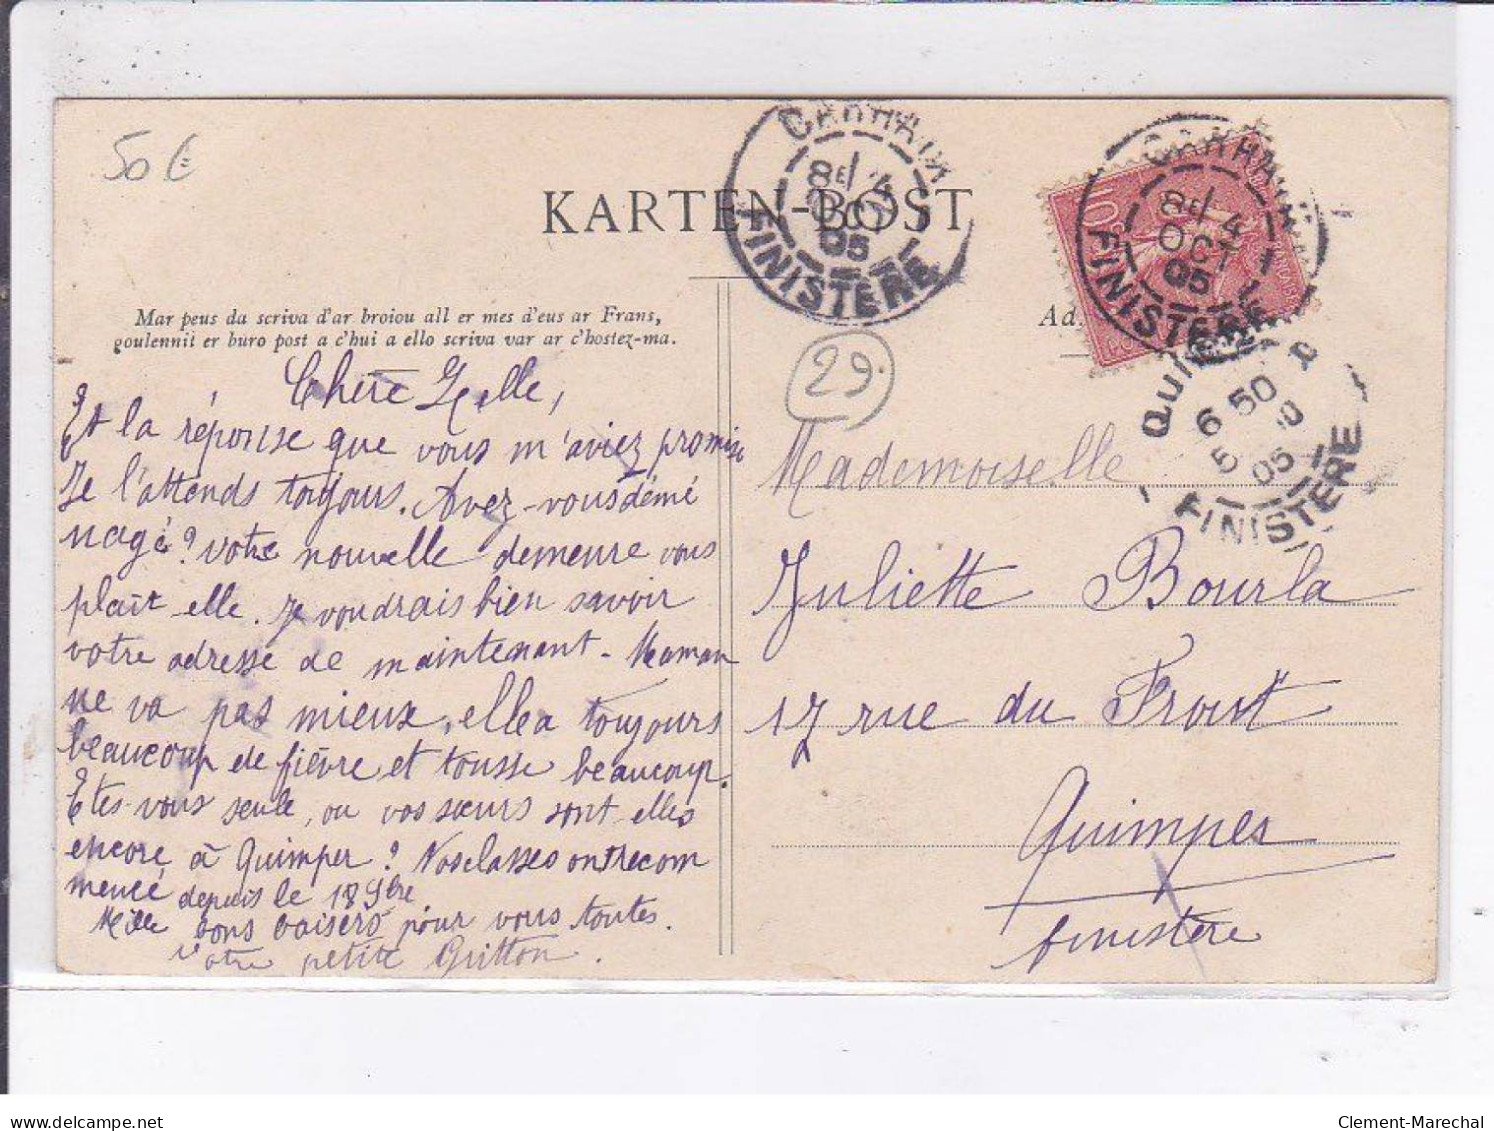 50 €
KARTEN-BOST
CARHAIX
8E/4
OCT
05
FINISTERE
CARHAIX
8E/4
OCT
05
FINISTERE
10
Mar peus da scriva d'ar broiou all er mes d'eus ar Frans,
goulennit er buro post a c'hui a ello scriva var ar c'hostez-ma.
Ad
29
QUIMPER
6 50
5 10
05
FINISTERE
Chère Melle,
Et la réponse que vous m'aviez promise
Je l'attends toujours. Avez-vous démé
nagé? votre nouvelle demeure vous
plait elle. Je voudrais bien savoir
votre adresse de maintenant - Maman
ne va pas mieux, elle a toujours
beaucoup de fièvre et tousse beaucoup.
Etes-vous seule, ou vos sœurs sont elles
encore à Quimper? Nos classes ont recom
mencé depuis le 18 9bre
Mille bons baisers pour vous toutes.
votre petite Gritton.
Mademoiselle
Juliette Bourla
17 rue du Frout
Quimper
finistère
delcampe.net
Clement-Marechal